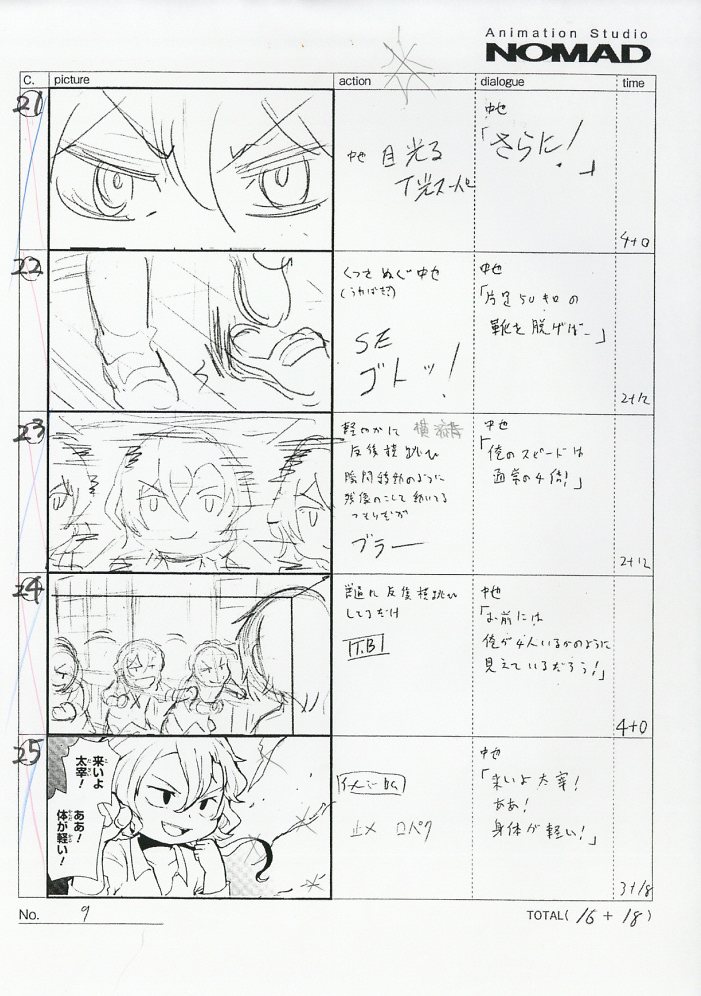 Animation Studio
NOMAD
C.
picture
action
dialogue
time
21
中也 目光る
T光スーパー
中也
「さらに!」
4+0
22
くつをぬぐ中也
(うわばき?)
SE
ゴトッ!
中也
「片足50キロの
靴を脱げばー」
2+12
23
反復横跳び
瞬間移動のように
残像のこして動いてる
つもりだが
ブラー
中也
「俺のスピードは
通常の4倍!」
2+12
24
反復横跳び
してるだけ
T.B
中也
「お前には
俺が4人いるかのように
見えているだろう!」
4+0
25
来いよ
太宰!
ああ!
体が軽い!
イメージBG
止メ 口パク
中也
「来いよ太宰!
ああ!
身体が軽い!」
3+18
No. 9
TOTAL( 16 + 18 )